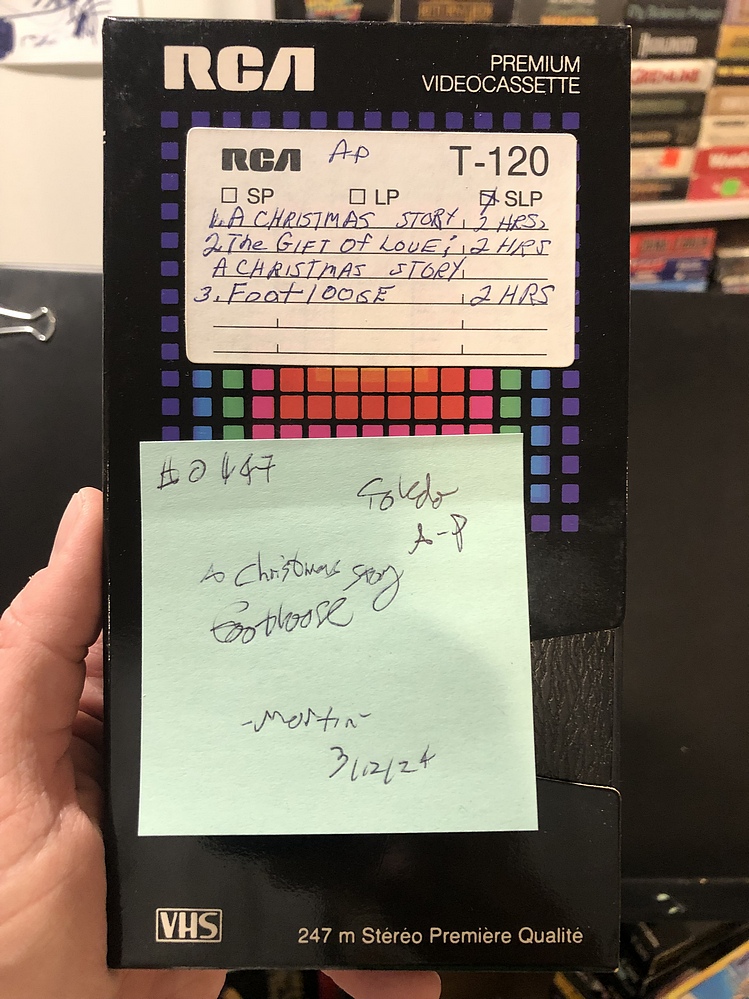 RCA
PREMIUM
VIDEOCASSETTE
RCA AP T-120
SP LP SLP
1. A CHRISTMAS STORY, 2 HRS,
2. The GIFT OF LOVE; 2 HRS
A CHRISTMAS STORY,
3. FootlooSE 2 HRS
#0447
Toledo
A-P
A Christmas story
Footloose
-Martin-
3/12/24
VHS
247 m Stéréo Première Qualité
GREMLINS